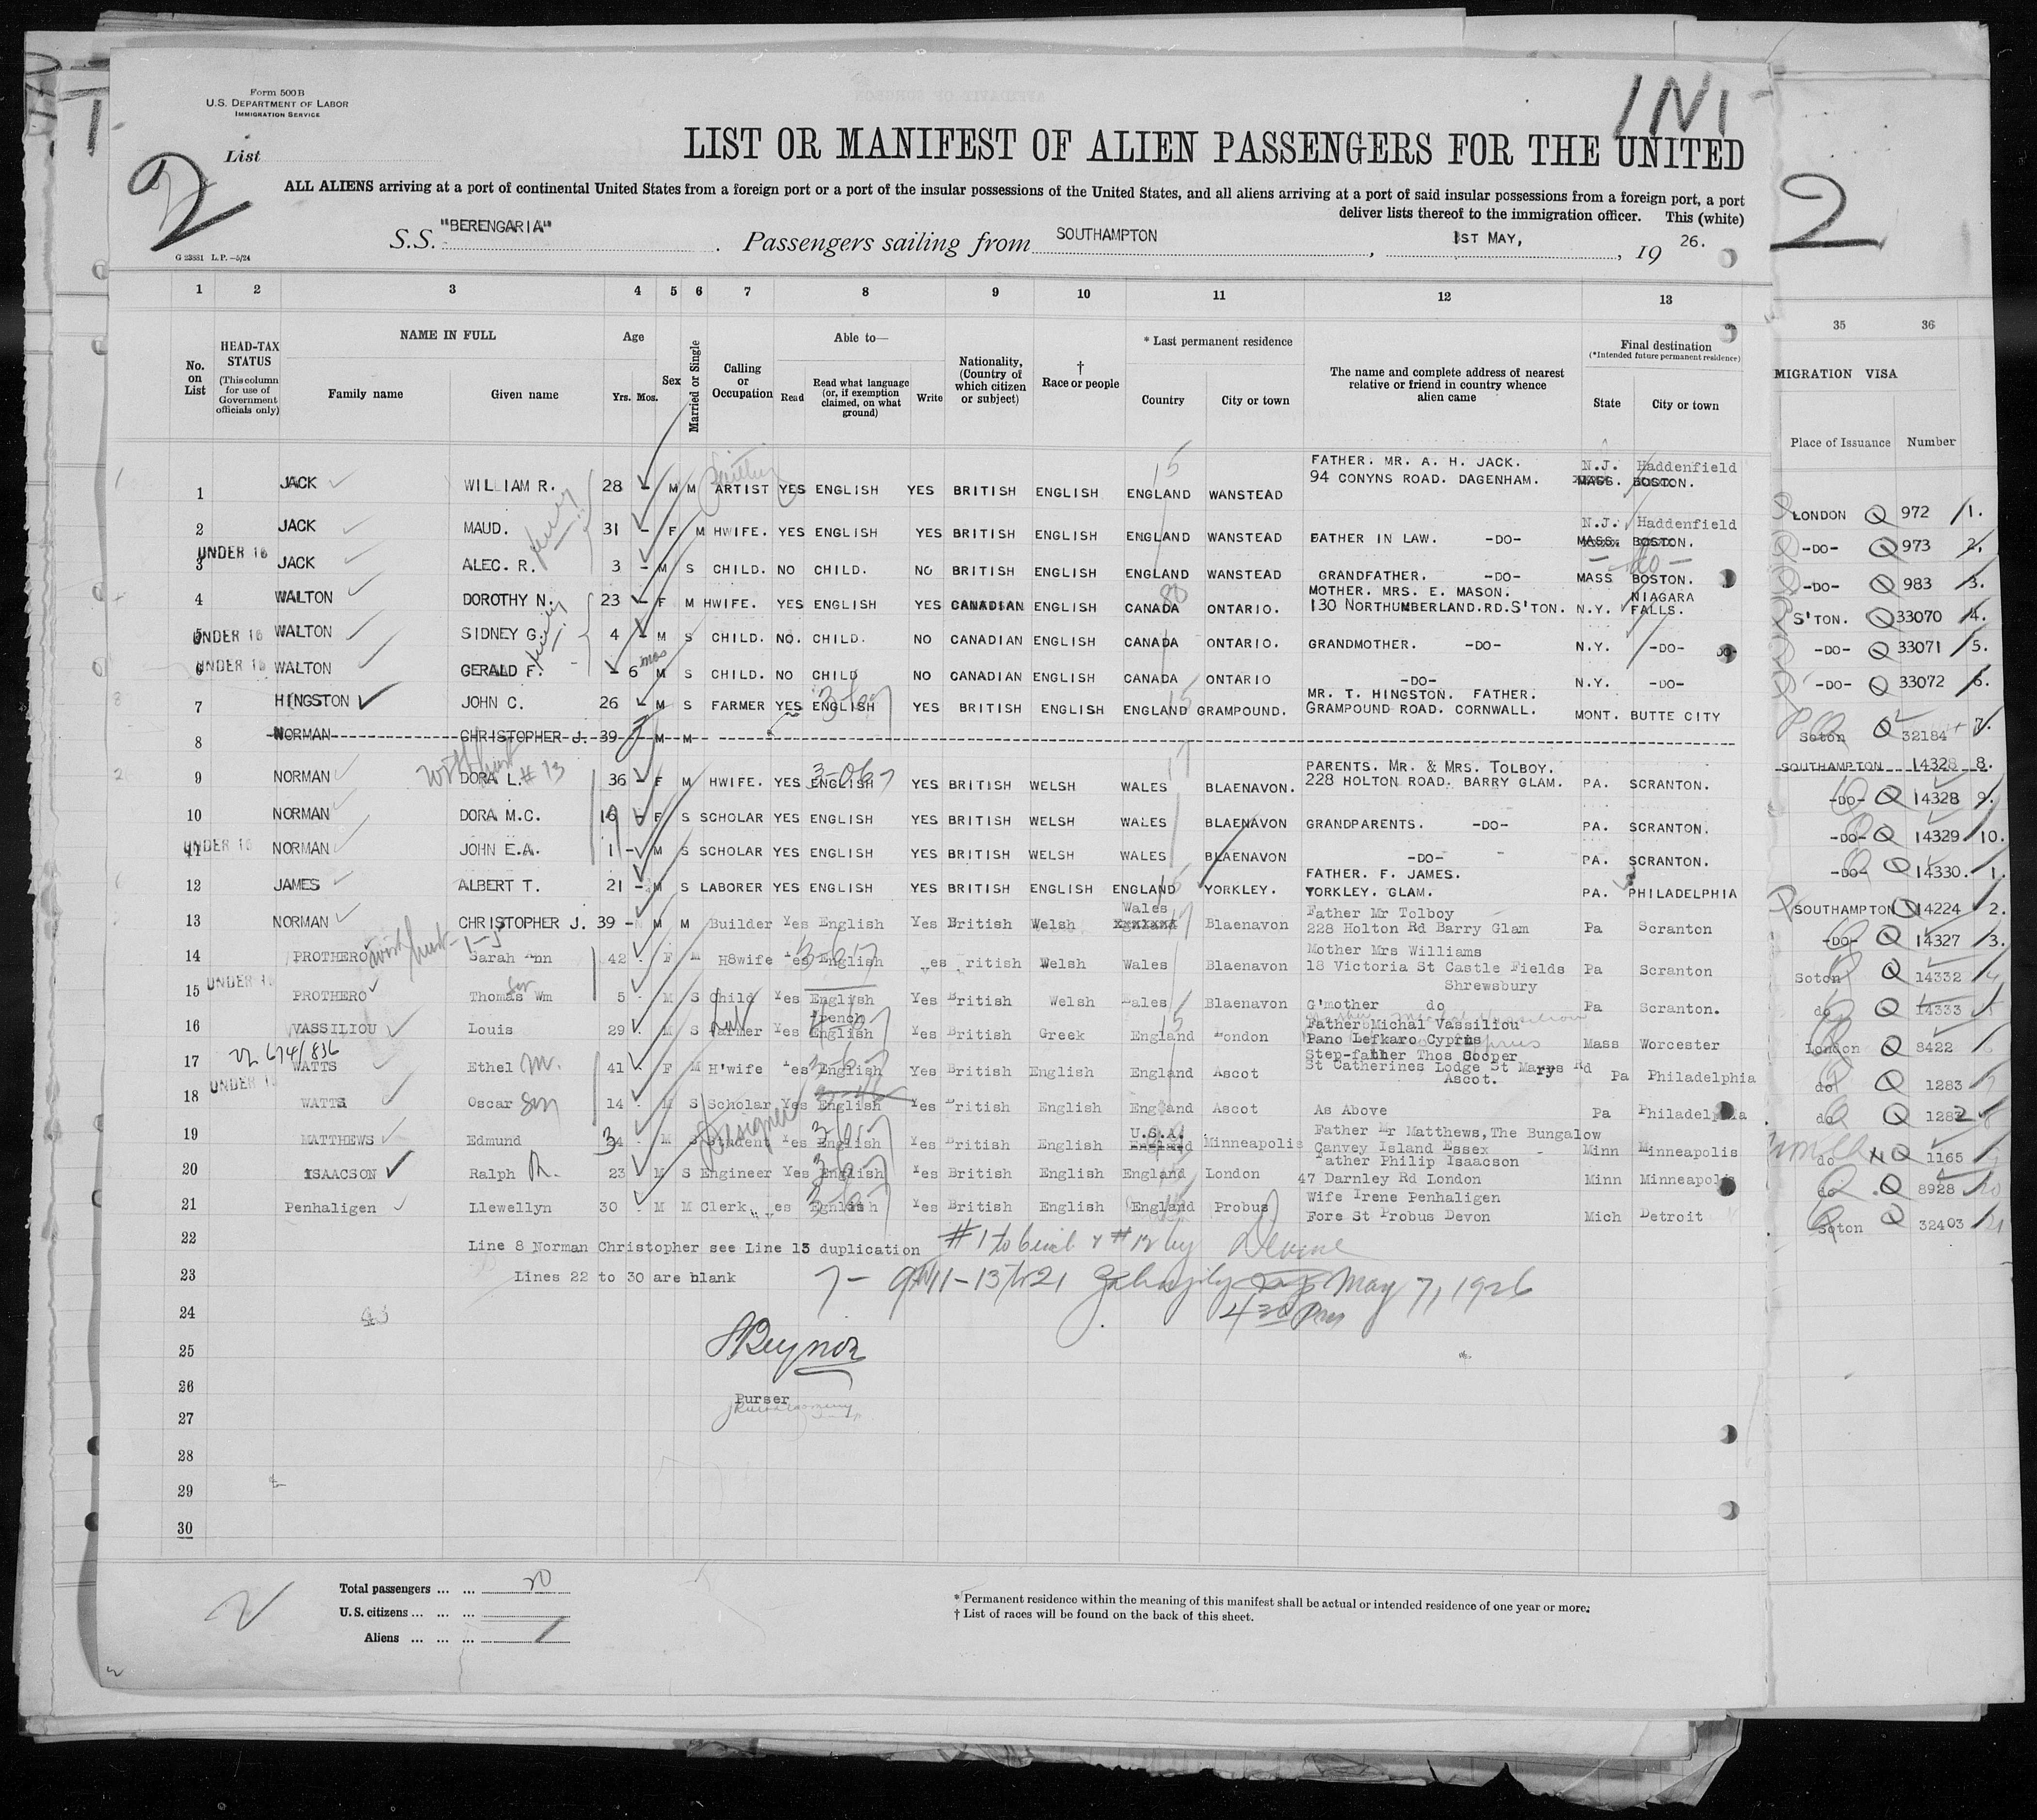 Form 500B
U.S. DEPARTMENT OF LABOR
IMMIGRATION SERVICE
1N1
List
2
LIST OR MANIFEST OF ALIEN PASSENGERS FOR THE UNITED
ALL ALIENS arriving at a port of continental United States from a foreign port or a port of the insular possessions of the United States, and all aliens arriving at a port of said insular possessions from a foreign port, a port
deliver lists thereof to the immigration officer. This (white)
S.S. "BERENGARIA" . Passengers sailing from SOUTHAMPTON , 1ST MAY, , 19 26.
2
G 23881 L.P.—5/24
1 2 3 4 5 6 7 8 9 10 11 12 13 35 36
No. on List
HEAD-TAX STATUS (This column for use of Government officials only)
NAME IN FULL Family name Given name
Age Yrs. Mos.
Sex
Married or Single
Calling or Occupation
Able to— Read Read what language (or, if exemption claimed, on what ground) Write
Nationality, (Country of which citizen or subject)
† Race or people
* Last permanent residence Country City or town
The name and complete address of nearest relative or friend in country whence alien came
Final destination (*Intended future permanent residence) State City or town
MIGRATION VISA Place of Issuance Number
1 JACK WILLIAM R. 28 - M M ARTIST YES ENGLISH YES BRITISH ENGLISH ENGLAND WANSTEAD FATHER. MR. A. H. JACK. 94 CONYNS ROAD. DAGENHAM. N.J. Haddenfield MASS. BOSTON. LONDON Q 972 1.
2 JACK MAUD. 31 - F M HWIFE. YES ENGLISH YES BRITISH ENGLISH ENGLAND WANSTEAD FATHER IN LAW. -DO- N.J. Haddenfield MASS. BOSTON. -DO- Q 973 2.
UNDER 16 3 JACK ALEC. R. 3 - M S CHILD. NO CHILD. NO BRITISH ENGLISH ENGLAND WANSTEAD GRANDFATHER. -DO- MASS BOSTON. -do- -DO- Q 983 3.
4 WALTON DOROTHY N. 23 - F M HWIFE. YES ENGLISH YES CANADIAN ENGLISH CANADA ONTARIO. MOTHER. MRS. E. MASON. 130 NORTHUMBERLAND.RD.S'TON. N.Y. NIAGARA FALLS. S'TON. Q 33070 4.
UNDER 16 5 WALTON SIDNEY G. 4 - M S CHILD. NO. CHILD. NO CANADIAN ENGLISH CANADA ONTARIO. GRANDMOTHER. -DO- N.Y. -DO- -DO- Q 33071 5.
UNDER 16 6 WALTON GERALD F. - 6 mos M S CHILD. NO CHILD NO CANADIAN ENGLISH CANADA ONTARIO -DO- N.Y. -DO- -DO- Q 33072 6.
7 HINGSTON JOHN C. 26 - M S FARMER YES ENGLISH YES BRITISH ENGLISH ENGLAND GRAMPOUND. MR. T. HINGSTON. FATHER. GRAMPOUND ROAD. CORNWALL. MONT. BUTTE CITY Soton Q 32184 7.
8 NORMAN CHRISTOPHER J. 39 M M SOUTHAMPTON 14328 8.
9 NORMAN DORA L. #13 36 - F M HWIFE. YES ENGLISH YES BRITISH WELSH WALES BLAENAVON. PARENTS. MR. & MRS. TOLBOY. 228 HOLTON ROAD. BARRY GLAM. PA. SCRANTON. -DO- Q 14328 9.
10 NORMAN DORA M.C. 16 - F S SCHOLAR YES ENGLISH YES BRITISH WELSH WALES BLAENAVON GRANDPARENTS. -DO- PA. SCRANTON. -DO- Q 14329 10.
UNDER 16 11 NORMAN JOHN E.A. 1 - M S SCHOLAR YES ENGLISH YES BRITISH WELSH WALES BLAENAVON -DO- PA. SCRANTON. -DO- Q 14330. 1.
12 JAMES ALBERT T. 21 - M S LABORER YES ENGLISH YES BRITISH ENGLISH ENGLAND YORKLEY. FATHER. F. JAMES. YORKLEY. GLAM. PA. PHILADELPHIA SOUTHAMPTON Q 14224 2.
13 NORMAN CHRISTOPHER J. 39 - M M Builder Yes English Yes British Welsh Wales Blaenavon Father Mr Tolboy 228 Holton Rd Barry Glam Pa Scranton -DO- Q 14327 3.
14 PROTHERO Sarah Ann 42 F M H8wife Yes English Yes British Welsh Wales Blaenavon Mother Mrs Williams 18 Victoria St Castle Fields Shrewsbury Pa Scranton Soton Q 14332 4
UNDER 16 15 PROTHERO Thomas Wm Son 5 M S Child Yes English Yes British Welsh Wales Blaenavon G'mother do Pa Scranton. do Q 14333
16 VASSILIOU Louis 29 M S Farmer Yes French English Yes British Greek England London Father Michal Vassiliou Pano Lefkaro Cyprus Mass Worcester London Q 8422
22 674/836
17 WATTS Ethel M. 41 F M H'wife Yes English Yes British English England Ascot Step-father Thos Cooper St Catherines Lodge St Marys Rd Ascot. Pa Philadelphia do Q 1283
18 WATTS Oscar Son 14 M S Scholar Yes English Yes British English England Ascot As Above Pa Philadelphia do Q 1282
19 MATTHEWS Edmund 34 M S Student Designer Yes English Yes British English U.S.A. England Minneapolis Father Mr Matthews,The Bungalow Canvey Island Essex Minn Minneapolis do Q 1165
20 ISAACSON Ralph R. 23 M S Engineer Yes English Yes British English England London Father Philip Isaacson 47 Darnley Rd London Minn Minneapolis do Q 8928
21 Penhaligen Llewellyn 30 M M Clerk Yes English Yes British English England Probus Wife Irene Penhaligen Fore St Probus Devon Mich Detroit Soton Q 32403 21
22 Line 8 Norman Christopher see Line 13 duplication #1 to 6 incl & #12 by Devine
23 Lines 22 to 30 are blank 7 - 9 to 11 - 13 to 21 May 7, 1926
24 43 4 30 Pm
25
26 Purser
27
28
29
30
2
Total passengers ... ... 20
U.S. citizens ... ... ...
Aliens ... ... ...
* Permanent residence within the meaning of this manifest shall be actual or intended residence of one year or more.
† List of races will be found on the back of this sheet.